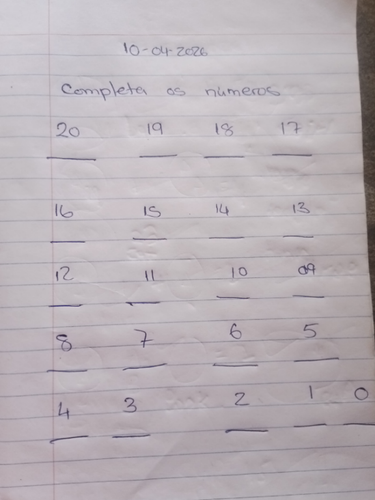 10-04-2026
Completa os números
20 19 18 17
16 15 14 13
12 11 10 09
8 7 6 5
4 3 2 1 0